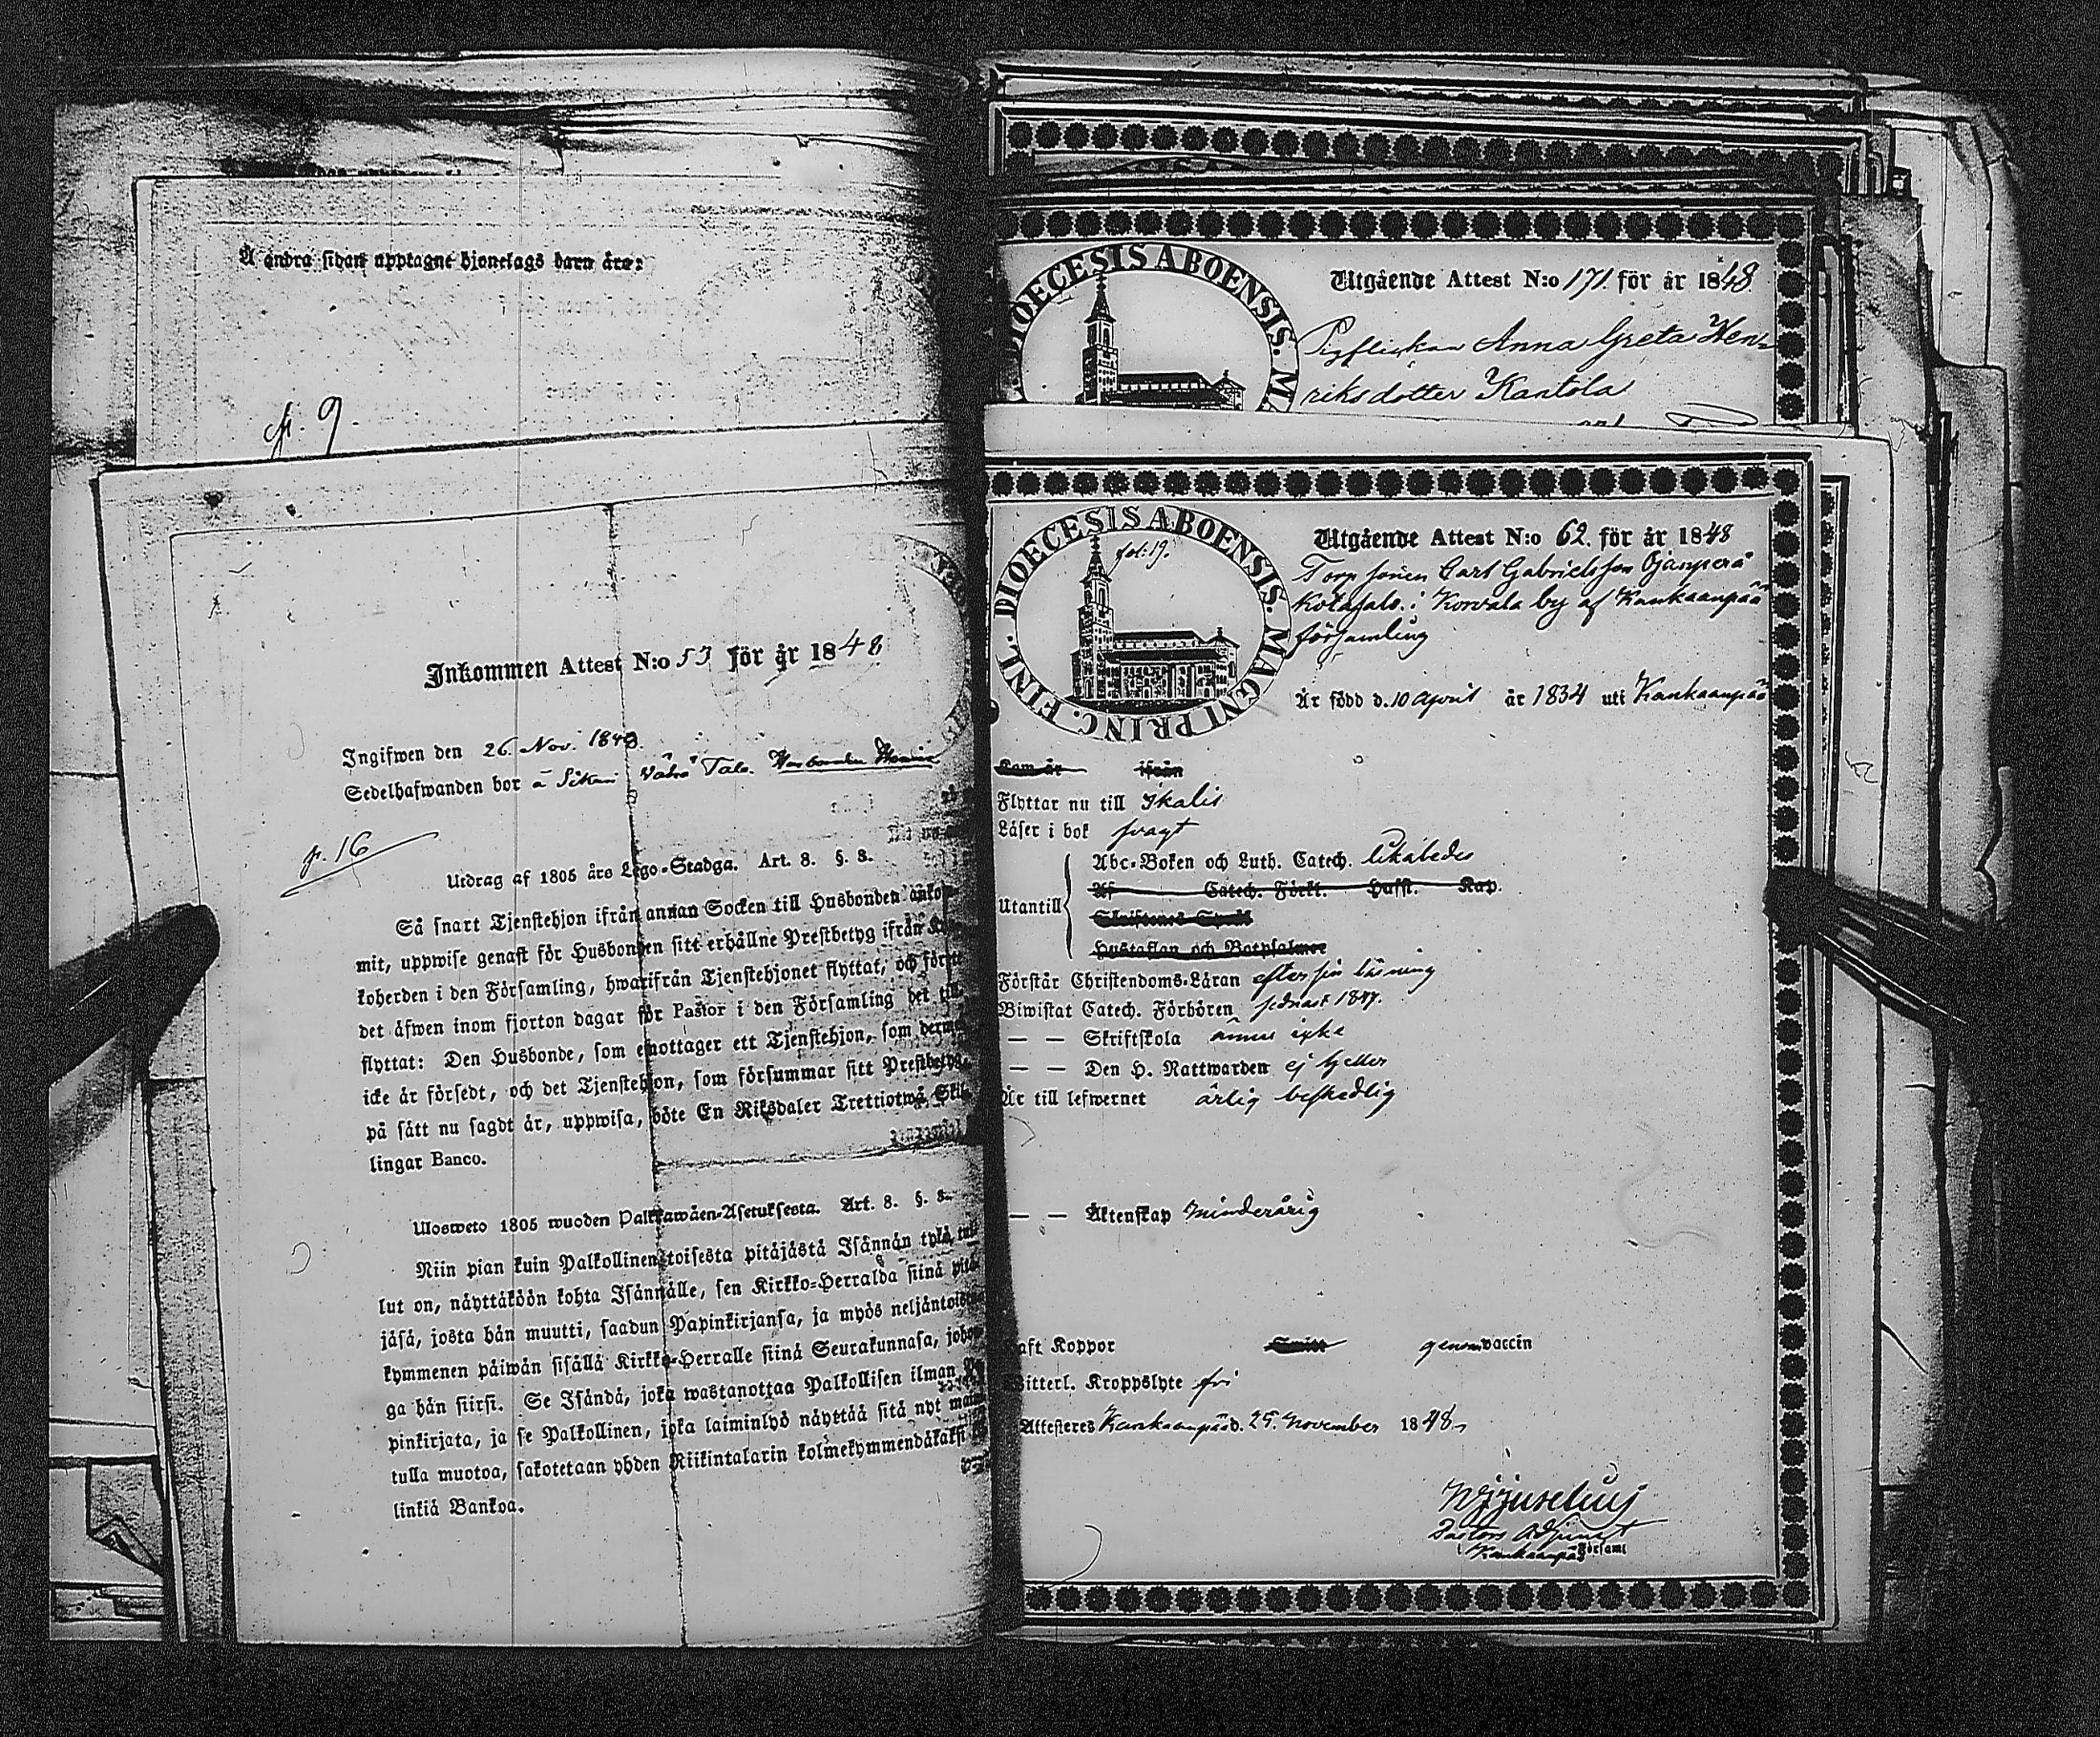 Å andra sidan upptagne hjonelags barn äro:
p. 9.
Inkommen Attest N:o 53 för år 1848
Ingifwen den 26. Nov. 1848.
Sedelhafwanden bor å
p. 16
Utdrag af 1805 års Lego-Stadga. Art. 8. §. 8.
Så snart Tjenstehjon ifrån annan Socken till Husbonden anko-
mit, uppwise genast för Husbonden sitt erhållne Prestbetyg ifrån
koherden i den Församling, hwarifrån Tjenstehjonet flyttat, och förete
det äfwen inom fjorton dagar för Pastor i den Församling det till
flyttat: Den Husbonde, som emottager ett Tjenstehjon, som dermed
icke är försedt, och det Tjenstehjon, som försummar sitt Prestbetyg,
på sätt nu sagdt är, uppwisa, böte En Riksdaler Trettiotwå Skil-
lingar Banco.
Ulosweto 1805 wuoden Palkkawäen-Asetuksesta. Art. 8. §. 8.
Niin pian kuin Palkollinen toisesta pitäjästä Isännän tykö tul-
lut on, näyttäköön kohta Isännälle, sen Kirkko-Herralda siinä pitä-
jäsä, josta hän muutti, saadun Papinkirjansa, ja myös neljäntoista
kymmenen päiwän sisällä Kirkko-Herralle siinä Seurakunnasa, johon-
ga hän siirsi. Se Isändä, joka wastanottaa Palkollisen ilman Pa-
pinkirjata, ja se Palkollinen, joka laiminlyö näyttää sitä nyt mainit-
tulla muotoa, sakotetaan yhden Riikintalarin kolmekymmendäkaksi
linkiä Bankoa.
DIOECESIS ABOENSIS. MA
Utgående Attest N:o 171 för år 1848
Pigflickan Anna Greta Hen-
riksdotter Kantola
DIOECESIS ABOENSIS. MAGNI PRINC. FINL.
fol: 19.
Utgående Attest N:o 62. för år 1848
Torp sonen Carl Gabrielsson Ojanperä
i Korvala by af Kankaanpää
församling
Är född d. 10 April år 1834 uti Kankaanpää
Kom år ifrån
Flyttar nu till Ikalis
Läser i bok svagt
Abc-Boken och Luth. Catech. likaledes
Af Catech. Förkl. Husst. Kap.
Skriftenes Språk
Utantill
Hustaflan och Botpsalmer
Förstår Christendoms-Läran efter sin läsning
Biwistat Catech. Förhören sednast 1847.
— — Skriftskola ännu icke
— — Den H. Nattwarden ej heller
Är till lefwernet ärlig beskedlig
— — Äktenskap minderårig
Haft Koppor Smitt genom vaccin
Witterl. Kroppslyte fri
Attesteres Kankaanpää d. 25. November 1848.
Pastors Adjunct
i Kankaanpää Församl